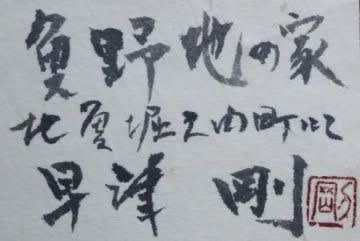 魚野地の家
北魚堀之内町にて
早津 剛
剛